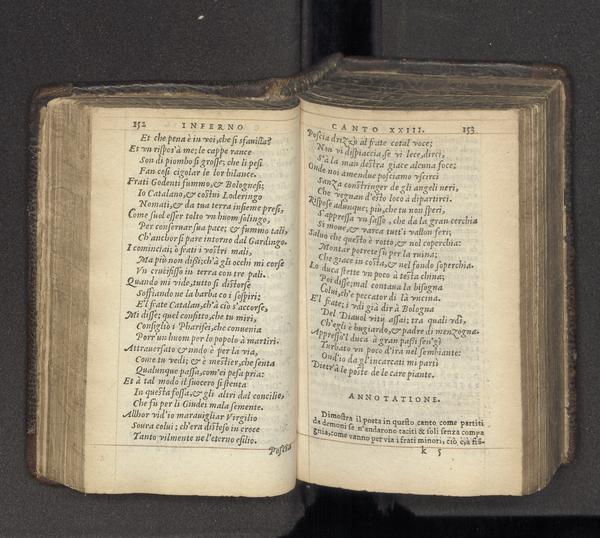 152 INFERNO
Et che pena è in voi, che si sfavilla?
Et vn rispos'à me; le cappe rance
Son di piombo si grosse; che li pesi
Fan cosi cigolar le lor bilance.
Frati Godenti fummo, & Bolognesi;
Io Catalano, & costui Loderingo
Nomati, & da tua terra insieme presi,
Come suol esser tolto vn huom solingo,
Per conseruar sua pace; & fummo tali,
Ch'anchor si pare intorno dal Gardingo.
I cominciai; ò frati i vostri mali,
Ma più non dißi; ch'à gli occhi mi corse
Vn crucifisso in terra con tre pali.
Quando mi vide, tutto si distorse
Soffiando ne la barba co i sospiri;
E'l frate Catalan, ch'à ciò s'accorse,
Mi disse; quel confitto, che tu miri,
Consigliò i Pharisei, che conuenia
Porr'un huom per lo popolo à martiri.
Attrauersato & nudo è per la via,
Come tu vedi; & è mestier, che senta
Qualunque passa, com'ei pesa pria:
Et à tal modo il suocero si stenta
In questa fossa, & gli altri dal concilio,
Che fù per li Giudei mala semente.
Allhor vid'io marauigliar Virgilio
Soura colui; ch'era disteso in croce
Tanto vilmente ne l'eterno esilio.
Poscia
CANTO XXIII. 153
Poscia drizzò al frate cotal voce;
Non vi dispiaccia, se vi lece, dirci,
S'à la man destra giace alcuna foce;
Onde noi amendue poßiamo vscirci
Sanza constringer de gli angeli neri,
Che vegnan d'esto loco à dipartirci.
Rispose adunque; più, che tu non speri,
S'appressa vn sasso, che da la gran cerchia
Si moue, & varca tutt'i vallon feri;
Saluo che questo è rotto, & nol coperchia:
Montar potrete sù per la ruina;
Che giace in costa, & nel fondo soperchia.
Lo duca stette vn poco à testa china;
Poi disse; mal contaua la bisogna
Colui, che i peccator di là vncina.
E'l frate; i vdi già dir à Bologna
Del Diauol vitij assai; tra quali vdi,
Ch'egli è bugiardo, & padre di menzogna.
Appresso'l duca à gran paßi sen'gì
Turbato vn poco d'ira nel sembiante:
Ond'io da gl'incarcati mi parti
Dietr'à le poste de le care piante.
ANNOTATIONE.
Dimostra il poeta in questo canto come partiti
da demoni se n'andarono taciti & soli senza compa
gnia, come vanno per via i frati minori, ciò, è à
k 5